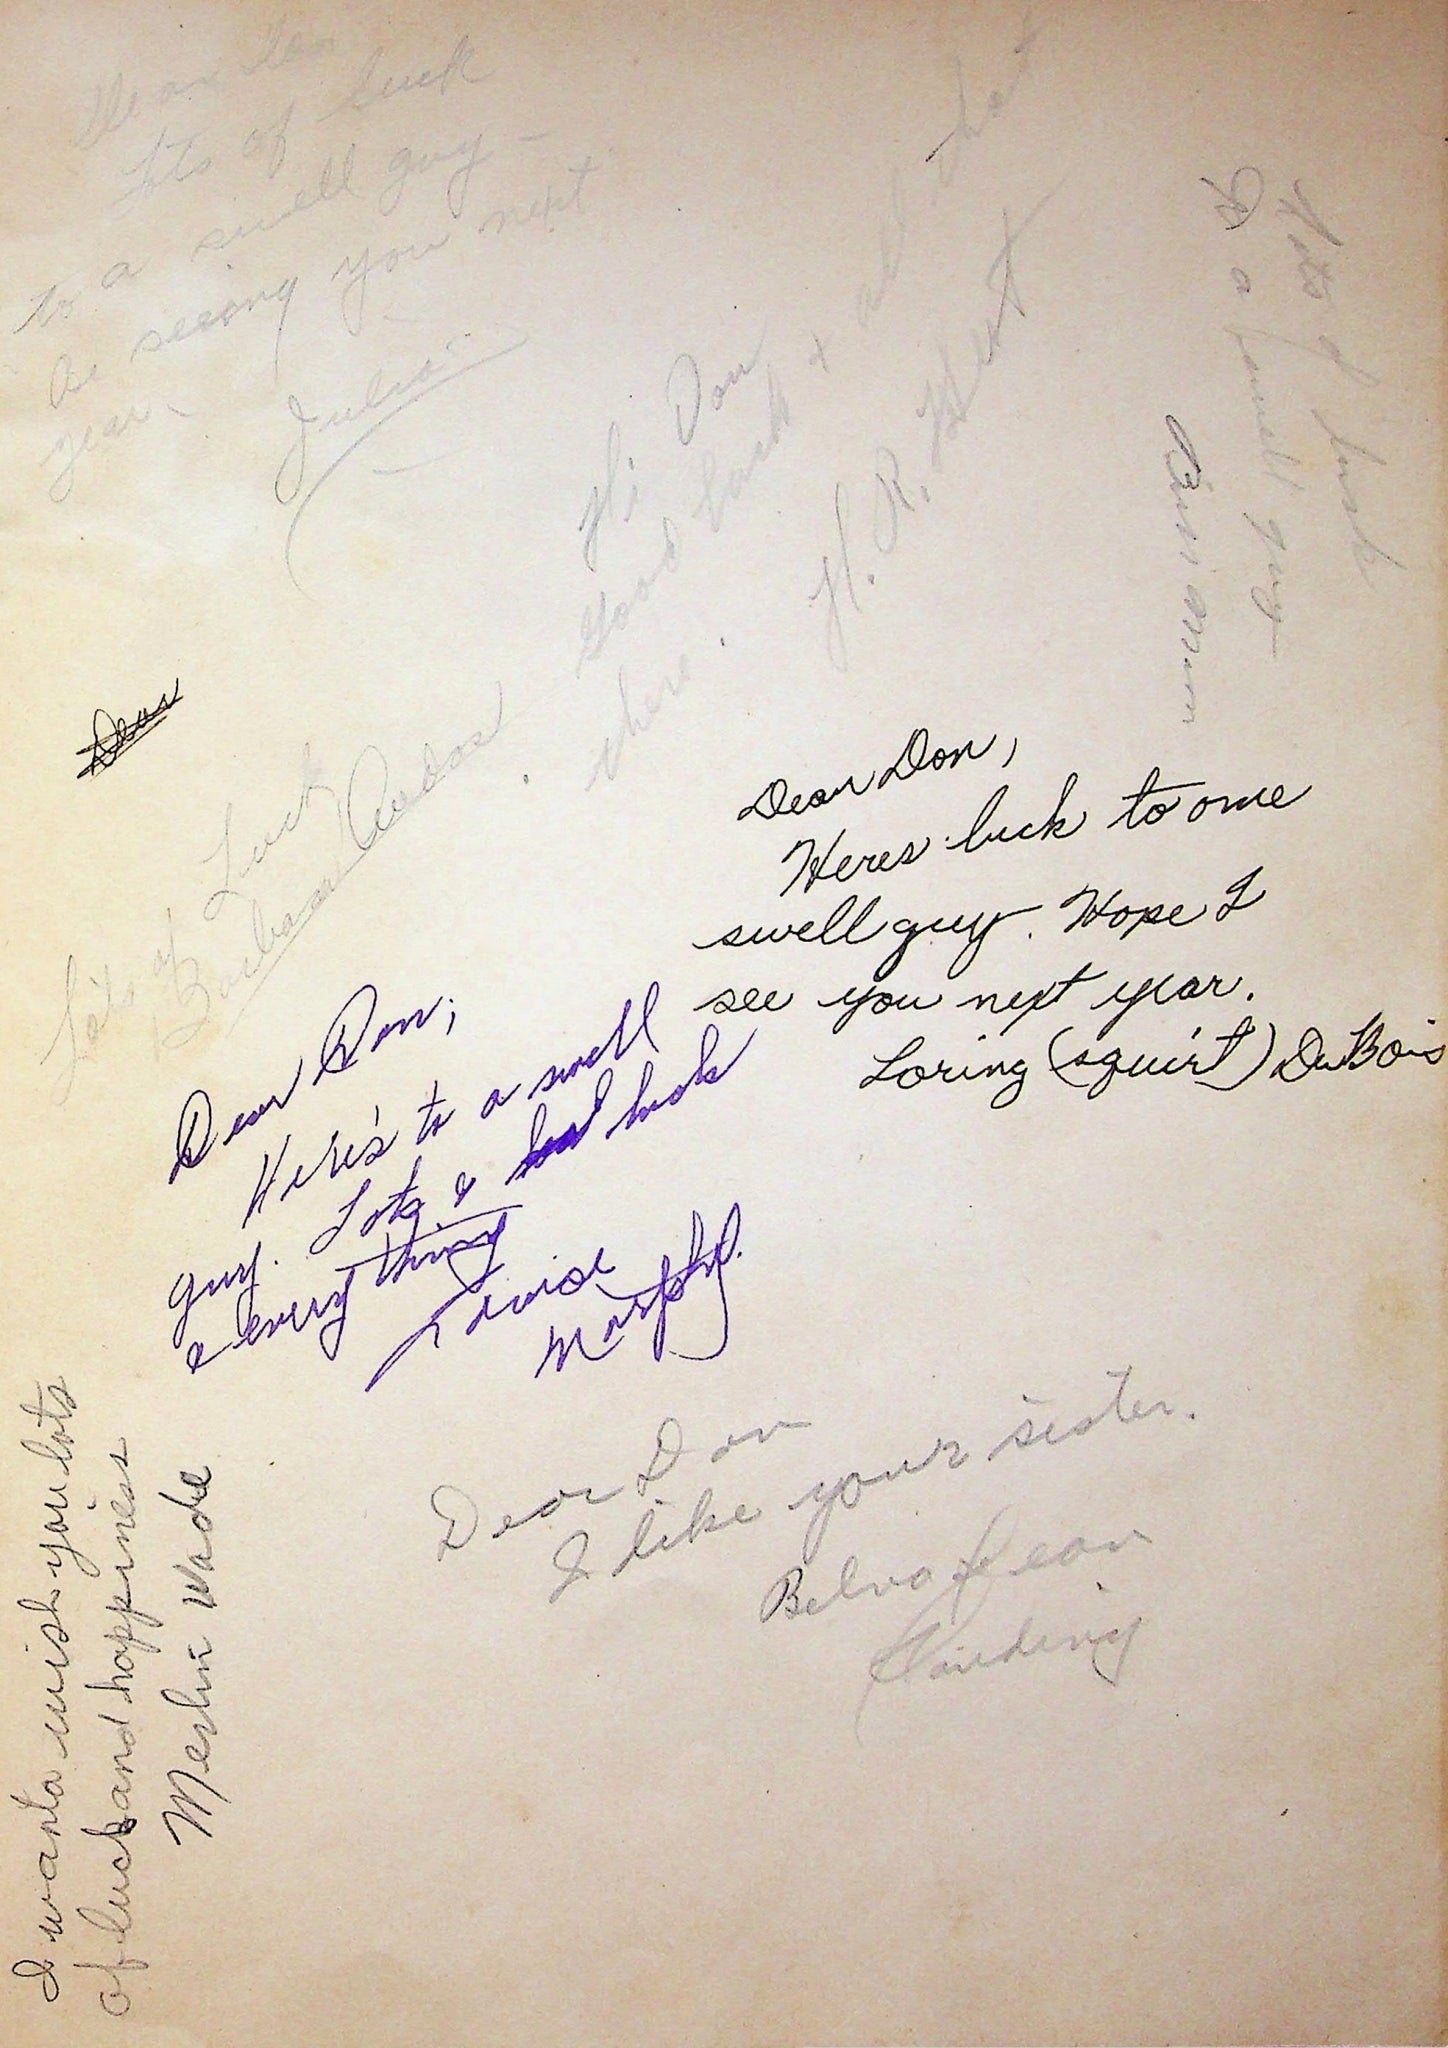 Dear Don
Lots of luck
to a swell guy –
Be seeing you next
year –
Julia
Hi Don
Good luck + all that
there.
H. R. Hurt
Lots of luck
to a swell guy
Dear
Lots of Luck
Barbara
Dear Don,
Heres luck to one
swell guy. Hope I
see you next year.
Loring (squirt) DuBois
Dear Don,
Here's to a swell
guy. Lots & luck
& everything
David
Murphy.
Dear Don
I like your sister.
Belva Jean
I wanta wish you lots
of luck and happiness
Merlin Wade